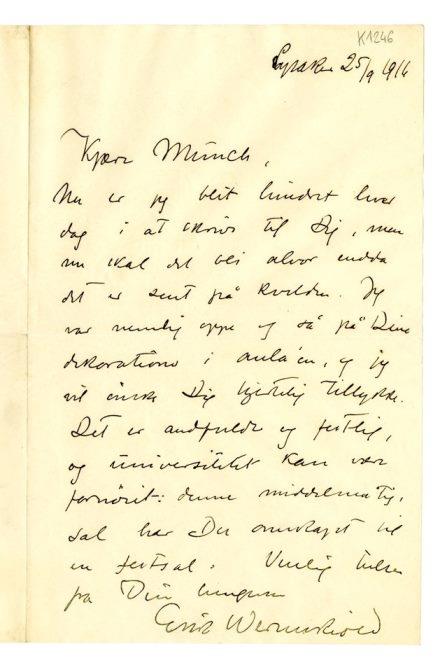 K1246
Lysaker 25/9 1916
Kjære Munch,
Nu er jeg blit hindret hver
dag i at skrive til Dig, men
nu skal det bli alvor endda
det er sent på kvelden. Jeg
var nemlig oppe og så på Dine
dekorationer i aula'en, og jeg
vil ønske Dig hjertelig tillykke.
Det er åndfuldt og festlig,
og universitetet kan være
fornöiet: denne middelmådig.
sal har Du omskapt til
en festsal. Venlig hilsen
fra Din hengivne
Erik Werenskiold